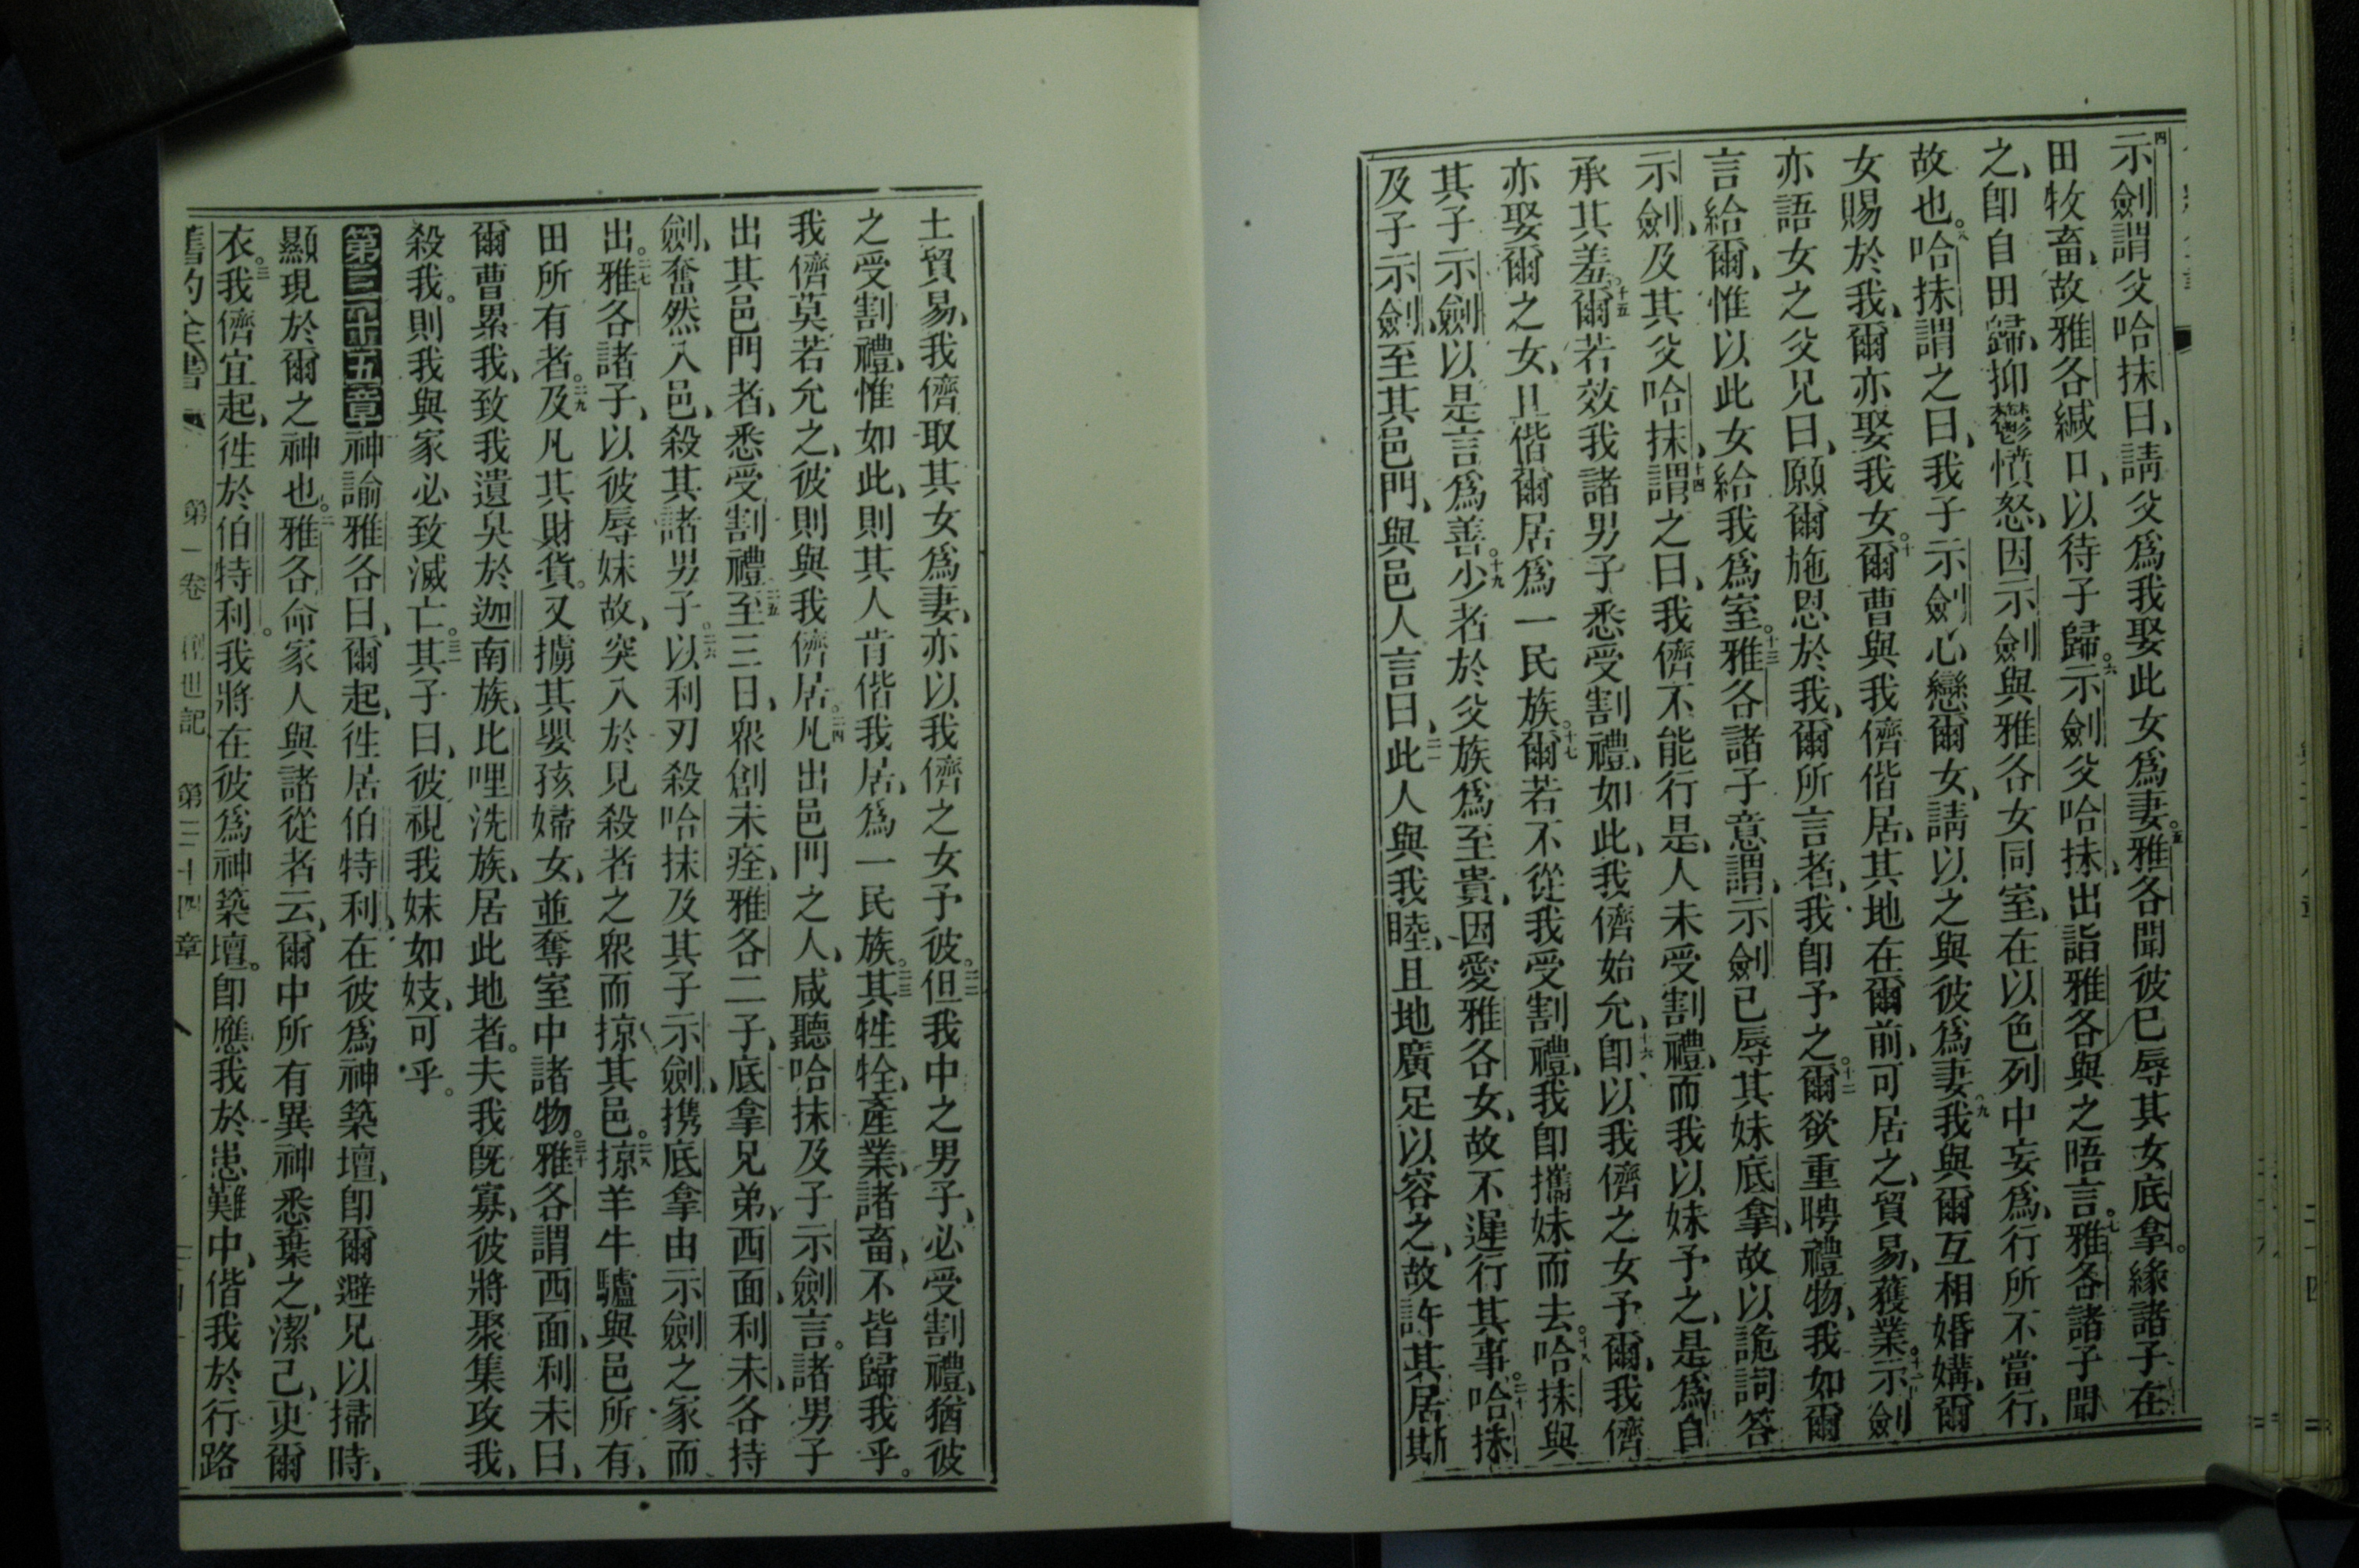 四示劍謂父哈抹曰、請父爲我娶此女爲妻。五雅各聞彼已辱其女底拿。緣諸子在
田牧畜、故雅各緘口、以待子歸。六示劍父哈抹、出詣雅各與之晤言。七雅各諸子聞
之、卽自田歸、抑鬱憤怒、因示劍與雅各女同室、在以色列中妄爲、行所不當行、
故也。八哈抹謂之曰、我子示劍心戀爾女、請以之與彼爲妻。九我與爾互相婚媾、爾
女賜於我、爾亦娶我女。十爾曹與我儕偕居、其地在爾前、可居之、貿易、獲業。十一示劍
亦語女之父兄曰、願爾施恩於我、爾所言者、我卽予之。十二爾欲重聘禮物、我如爾
言給爾、惟以此女給我爲室。十三雅各諸子意謂、示劍已辱其妹底拿、故以詭詞答
示劍、及其父哈抹、十四謂之曰、我儕不能行是、人未受割禮、而我以妹予之、是爲自
承其羞。十五爾若效我諸男子悉受割禮、如此、我儕始允、十六卽以我儕之女予爾、我儕
亦娶爾之女、且偕爾居爲一民族。十七爾若不從我受割禮、我卽攜妹而去。十八哈抹與
其子示劍、以是言爲善。十九少者於父族爲至貴、因愛雅各女、故不遲行其事。二十哈抹
及子示劍、至其邑門、與邑人言曰、二一此人與我睦、且地廣足以容之、故許其居斯
土貿易、我儕取其女爲妻、亦以我儕之女予彼。二二但我中之男子、必受割禮、猶彼
之受割禮、惟如此、則其人肯偕我居、爲一民族。二三其牲牷、產業、諸畜、不皆歸我乎。
我儕莫若允之、彼則與我儕居。二四凡出邑門之人、咸聽哈抹及子示劍言。諸男子
出其邑門者、悉受割禮。二五至三日、衆創未痊、雅各二子、底拿兄弟、西面、利未、各持
劍、奮然入邑、殺其諸男子。二六以利刃殺哈抹及其子示劍、携底拿由示劍之家而
出。二七雅各諸子、以彼辱妹故、突入於見殺者之衆而掠其邑。二八掠羊牛驢與邑所有、
田所有者。二九及凡其財貨。又擄其嬰孩婦女、並奪室中諸物。三十雅各謂西面、利未曰、
爾曹累我、致我遺臭於迦南族、比哩洗族、居此地者。夫我旣寡、彼將聚集攻我、
殺我。則我與家必致滅亡。三一其子曰、彼視我妹如妓、可乎。
第三十五章神諭雅各曰、爾起、徃居伯特利、在彼爲神築壇、卽爾避兄以掃時、
顯現於爾之神也。二雅各命家人與諸從者云、爾中所有異神悉棄之、潔己、更爾
衣。三我儕宜起、徃於伯特利。我將在彼爲神築壇。卽應我於患難中、偕我於行路
舊約全書 第一卷 創世記 第三十四章